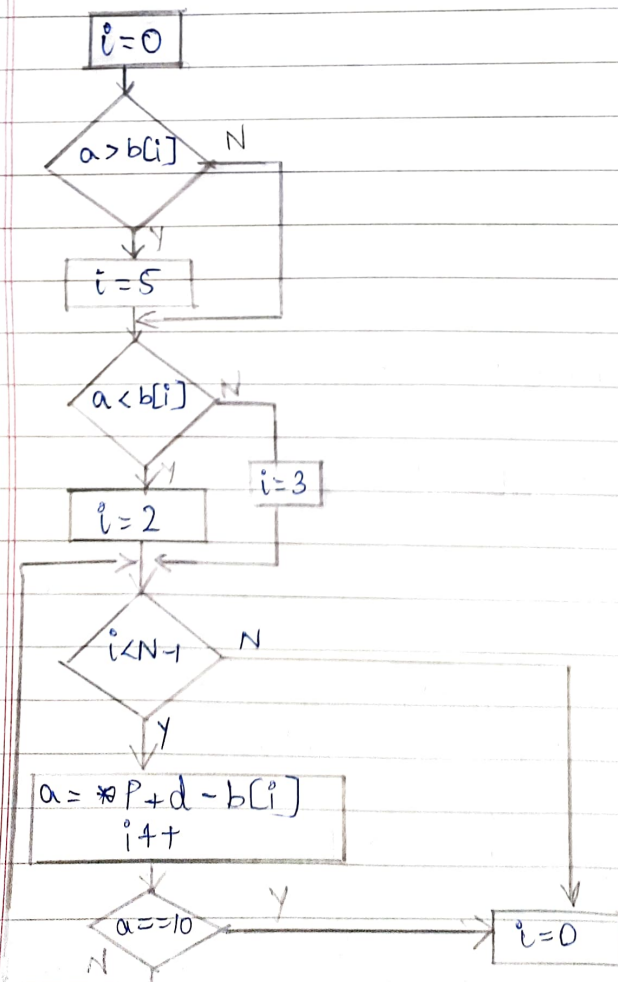 i=0
a>b[i]
N
Y
i=5
a<b[i]
N
Y
i=3
i=2
i<N-1
N
Y
a= *P+d-b[i]
i++
a==10
Y
i=0
N